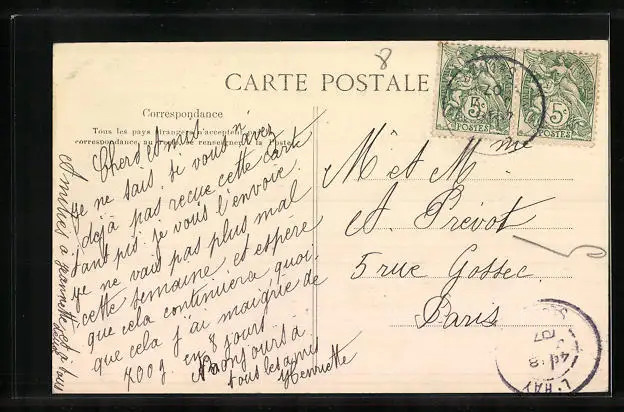 8
CARTE POSTALE
Correspondance
Tous les pays étrangers n'acceptent
correspondance au renseignement la Poste
Chers et moi
je ne sais si vous n'avez
déjà pas reçue cette carte
tant pis je vous l'envoie
je ne vais pas plus mal
cette semaine et espère
que cela continuera quoi-
que cela j'ai maigrie de
700 g. en 8 jours
Bonjours a
tous les amis
Henriette
Amitiés a Jeannette et a tous
M et Mme
A. Prévot
5 rue Gossec.
Paris
5c
POSTES
5c
POSTES
07
L'HAY
07